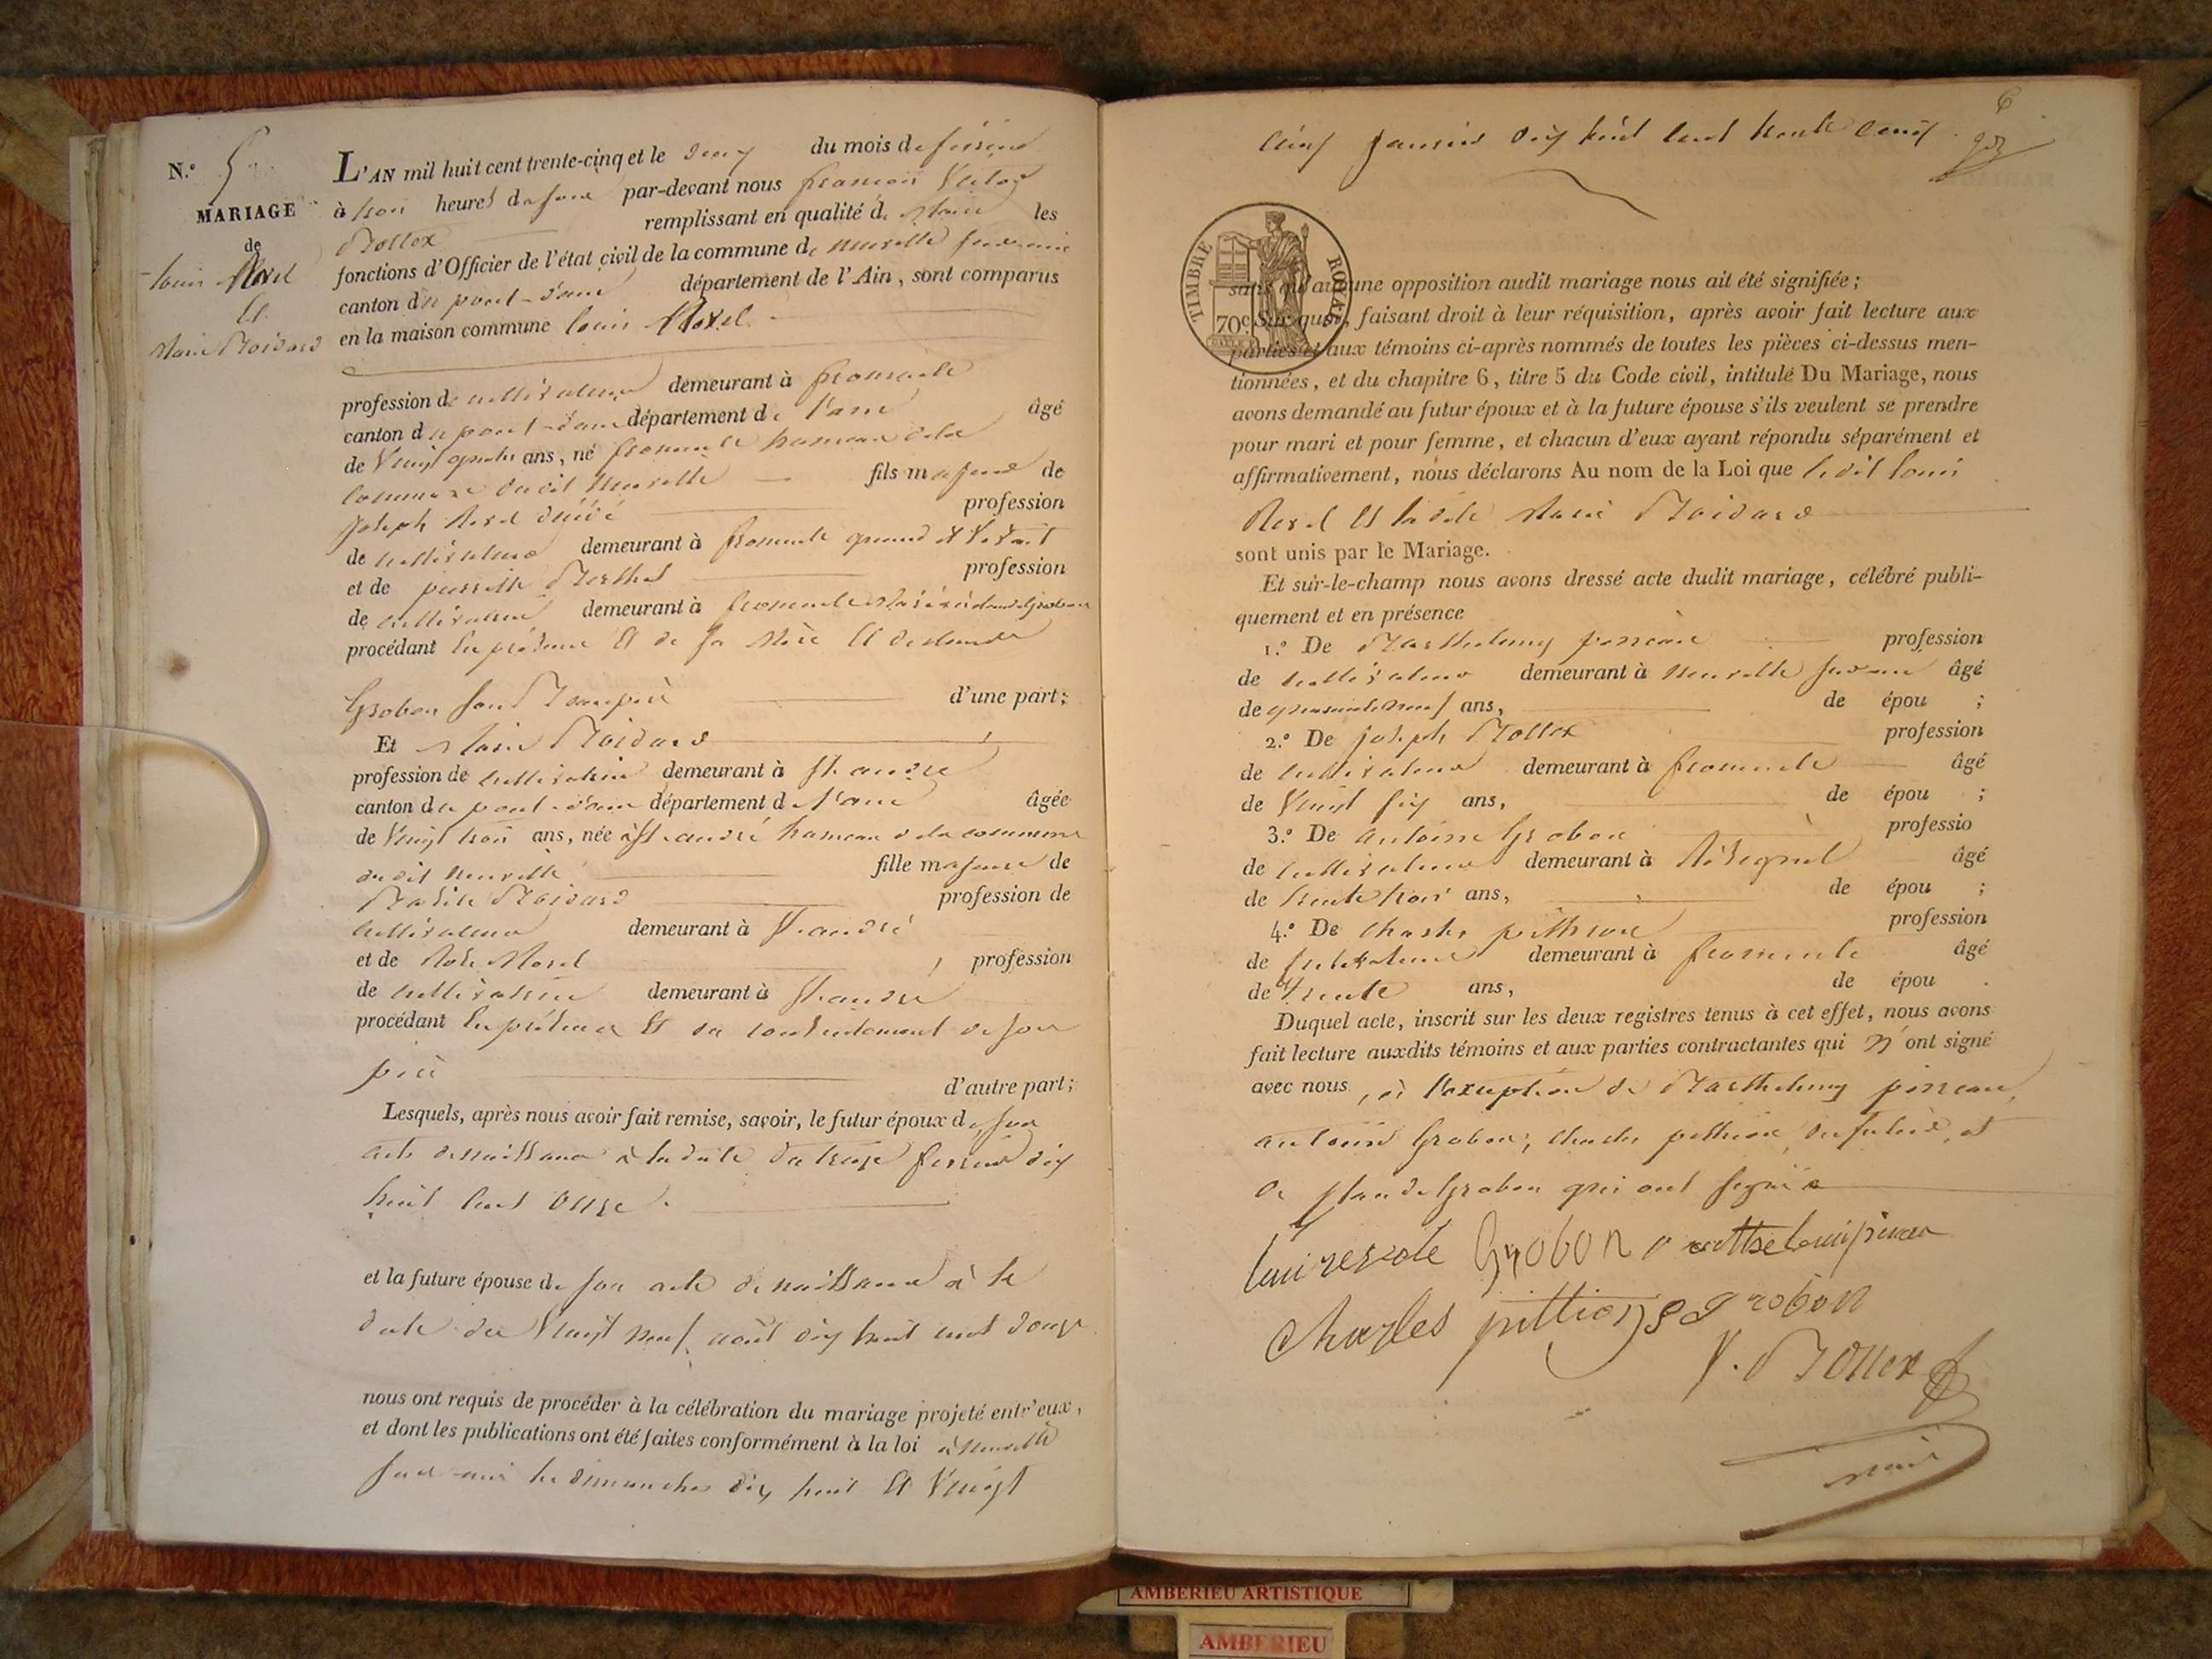 N.º 5
MARIAGE
de
Louis Morel
et
Marie Boidard
L'AN mil huit cent trente-cinq et le deux du mois de février
à trois heures du soir par-devant nous françois Victor
Bollex remplissant en qualité de Maire les
fonctions d'Officier de l'état civil de la commune de neuville sur ain
canton du pont-d'ain département de l'Ain, sont comparus
en la maison commune Louis Morel
profession de cultivateur demeurant à fromente
canton du pont-d'ain département de l'ain âgé
de Vingt quatre ans, né fromente hameau de la
commune dudit neuville fils majeur de
joseph Morel décédé profession
de cultivateur demeurant à fromente quand il vivait
et de Berthet profession
de cultivateur demeurant à fromente
procédant en présence et de sa Mère et de Claude
Grobon son Beaupère d'une part;
Et Marie Boidard
profession de cultivatrice demeurant à St. andré
canton du pont-d'ain département de l'ain âgée
de Vingt trois ans, née à St. andré hameau de la commune
dudit neuville fille majeure de
Boidard profession de
cultivateur demeurant à St. andré
et de Morel profession
de cultivatrice demeurant à St. andré
procédant en présence et du consentement de son
père d'autre part;
Lesquels, après nous avoir fait remise, savoir, le futur époux de son
acte de naissance à la date du treize février dix
huit cent onze.
et la future épouse de son acte de naissance à la
date du Vingt neuf août dix huit cent douze
nous ont requis de procéder à la célébration du mariage projeté entr'eux,
et dont les publications ont été faites conformément à la loi à neuville
sur ain les dimanches dix huit et Vingt
6
cinq janvier dix huit cent trente cinq
TIMBRE ROYAL
70c
sans qu'aucune opposition audit mariage nous ait été signifiée;
Sur quoi, faisant droit à leur réquisition, après avoir fait lecture aux
parties et aux témoins ci-après nommés de toutes les pièces ci-dessus men-
tionnées, et du chapitre 6, titre 5 du Code civil, intitulé Du Mariage, nous
avons demandé au futur époux et à la future épouse s'ils veulent se prendre
pour mari et pour femme, et chacun d'eux ayant répondu séparément et
affirmativement, nous déclarons Au nom de la Loi que le dit Louis
Morel et la dite Marie Boidard
sont unis par le Mariage.
Et sur-le-champ nous avons dressé acte dudit mariage, célébré publi-
quement et en présence
1.º De Barthelemy pinceau profession
de cultivateur demeurant à neuville sur ain âgé
de quarante neuf ans, de épou ;
2.º De joseph Bollex profession
de cultivateur demeurant à fromente âgé
de Vingt six ans, de épou ;
3.º De antoine Grobon professio
de cultivateur demeurant à âgé
de trente trois ans, de épou ;
4.º De Charles pittion profession
de demeurant à fromente âgé
de trente ans, de épou
Duquel acte, inscrit sur les deux registres tenus à cet effet, nous avons
fait lecture auxdits témoins et aux parties contractantes qui n'ont signé
avec nous, à l'exception de Barthelemy pinceau,
antoine Grobon, Charles pittion, du futur, et
de Claude Grobon qui ont signé
Grobon
Charles pittion grobon
V. Bollex
maire
AMBERIEU ARTISTIQUE
AMBERIEU